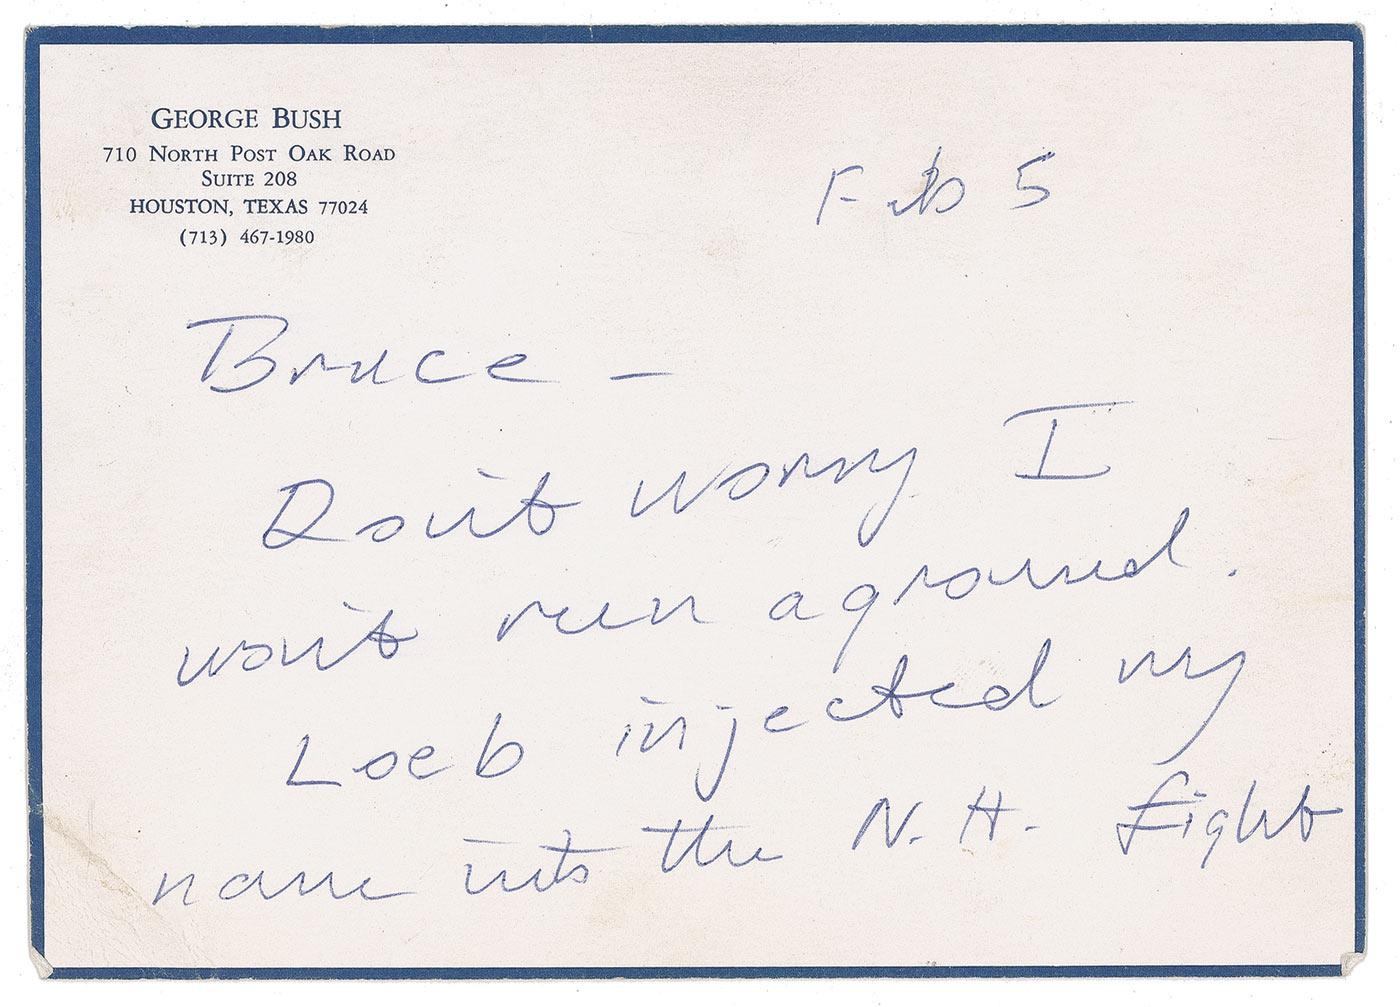 GEORGE BUSH
710 NORTH POST OAK ROAD
SUITE 208
HOUSTON, TEXAS 77024
(713) 467-1980
Feb 5
Bruce -
Don't worry I
won't run aground.
Loeb injected my
name into the N.H. fight